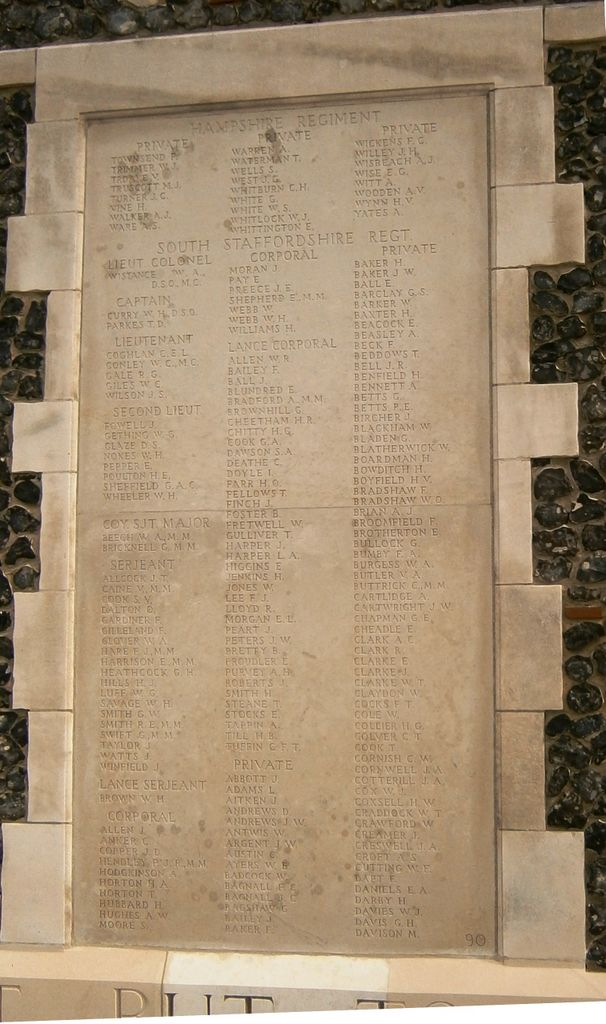 HAMPSHIRE REGIMENT
PRIVATE
TOWNSEND F.
TRIMMER W. J.
TRUSCOTT M. J.
TURNER J. C.
VINE H.
WALKER A. J.
WARE A. S.
PRIVATE
WARREN A.
WATERMAN T.
WELLS S.
WEST J. G.
WHITBURN C. H.
WHITE G.
WHITE W. S.
WHITLOCK W. J.
WHITTINGTON E.
PRIVATE
WICKENS F. G.
WILLEY J. H.
WISBEACH A. J.
WISE E. G.
WITT A.
WOODEN A. V.
WYNN H. V.
YATES A.
SOUTH STAFFORDSHIRE REGT.
LIEUT. COLONEL
WISTANCE W. A.,
D.S.O., M.C.
CAPTAIN
CURRY W. H., D.S.O.
PARKES T. D.
LIEUTENANT
COGHLAN C. E. L.
CONLEY W. C., M.C.
GALE B. G.
GILES W. C.
WILSON J. S.
SECOND LIEUT.
FOWELL J.
GETHING W. G.
GLAZE D. S.
NOKES W. H.
PEPPER E.
POULTON H. E.
SHEFFIELD G. A. C.
WHEELER W. H.
COY. SJT. MAJOR
BEECH W. A., M.M.
BRICKNELL G., M.M.
SERJEANT
ALLCOCK J. T.
CAINE V., M.M.
COOK S. V.
DALTON B.
GARDINER F.
GILLELAND F.
GLOVER W. A.
HARE F. J., M.M.
HARRISON E., M.M.
HEATHCOCK G. H.
HILLS H. J.
LUFF W. G.
SAVAGE W. H.
SMITH G. W.
SMITH R. E., M.M.
SWIFT G., M.M.
TAYLOR J.
WATTS J.
WINFIELD J.
LANCE SERJEANT
BROWN W. H.
CORPORAL
ALLEN J.
ANKER C.
COPPER J. D.
HENDLEY P. J. F., M.M.
HODGKINSON A.
HORTON H. A.
HORTON T.
HUBBARD H.
HUGHES A. W.
MOORE S.
CORPORAL
MORAN J.
PAY E.
PREECE J. E.
SHEPHERD E., M.M.
WEBB W.
WEBB W. H.
WILLIAMS H.
LANCE CORPORAL
ALLEN W. R.
BAILEY F.
BALL J.
BLUNDRED E.
BRADFORD A., M.M.
BROWNHILL G.
CHEETHAM H. R.
CHITTY H. G.
COOK G. A.
DAWSON S. A.
DEATHE C.
DOYLE J.
FARR H. O.
FELLOWS T.
FINCH J.
FOSTER B.
FRETWELL W.
GULLIVER T.
HARPER J.
HARPER L. A.
HIGGINS E.
JENKINS H.
JONES W.
LEE F. J.
LLOYD R.
MORGAN E. L.
PEART J.
PETERS J. W.
PRETTY B.
PROUDLER E.
PURVEY A. H.
ROBERTS J.
SMITH H.
STEANE T.
STOCKS E.
TAPPIN A.
TILL H. B.
TUFFIN G. F. T.
PRIVATE
ABBOTT J.
ADAMS L.
AITKEN J.
ANDREWS D.
ANDREWS J. W.
ANTWIS W.
ARGENT J. W.
AUSTIN C.
AYERS W. E.
BADCOCK W.
BAGNALL F. C.
BAGNALL J. C.
BAGSHAW C.
BAILEY J.
BAKER F.
PRIVATE
BAKER H.
BAKER J. W.
BALL E.
BARCLAY G. S.
BARKER W.
BAXTER H.
BEACOCK E.
BEASLEY A.
BECK F.
BEDDOWS T.
BELL J. R.
BENFIELD H.
BENNETT A.
BETTS G.
BETTS P. E.
BIRCHER J.
BLACKHAM W.
BLADEN G.
BLATHERWICK W.
BOARDMAN H.
BOWDITCH H.
BOYFIELD H. V.
BRADSHAW F.
BRADSHAW W. O.
BRIAN A. J.
BROOMFIELD F.
BROTHERTON E.
BULLOCK G.
BUMBY F. A.
BURGESS W. A.
BUTLER V. A.
BUTTRICK C., M.M.
CARTLIDGE A.
CARTWRIGHT J. W.
CHAPMAN G. E.
CHEADLE E.
CLARK A. C.
CLARK R.
CLARKE E.
CLARKE J.
CLARKE W. T.
CLAYDON W.
COCKS F. T.
COLE W.
COLLIER H. G.
COLVER C. T.
COOK T.
CORNISH C. W.
CORNWELL J. A.
COTTERILL J. A.
COX W. J.
COXSELL H. W.
CRADDOCK W. T.
CRAWFORD W.
CREAMER J.
CRESWELL J. A.
CROFT A. S.
CUTTING W. F.
DABT F.
DANIELS E. A.
DARBY H.
DAVIES W. J.
DAVIS G. H.
DAVISON M.
90
BUT TO